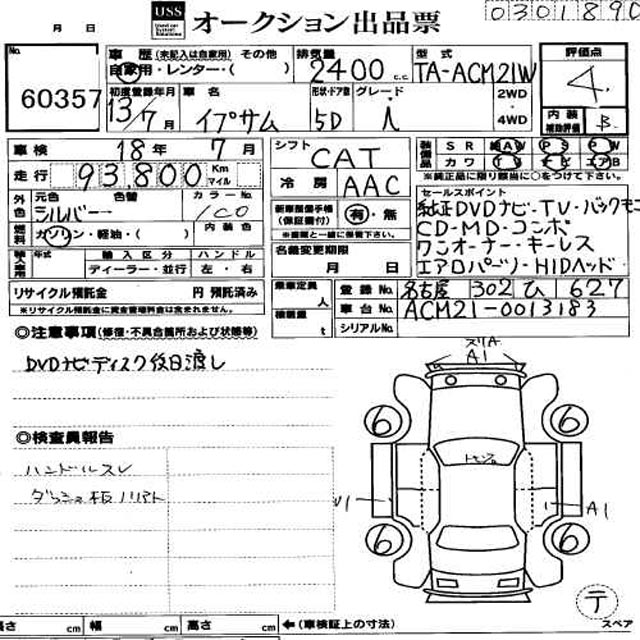 USS オークション出品票 0301890
月 日
No. 60357
車歴(未記入は自家用) その他
自家用・レンター・( )
排気量 2400 c.c.
型式 TA-ACM21W
評価点 4.
初度登録年月 13/7月
車名 イプサム
形状・ドア数 5D
グレード i
2WD・4WD
内装補助評価 B
車検 18年 7月
走行 93,800 Km マイル
外色 元色 シルバー 色替 カラーNo. 1C0
燃料 ガソリン・軽油・( ) 内装色
輸入車用 年式 輸入区分 ハンドル
ディーラー・並行 左・右
リサイクル預託金 円 預託済み
※リサイクル預託金に資金管理料金は含まれません。
シフト CAT
冷房 AAC
新車整備手帳(保証書付) 有・無
※書類と一緒に保管下さい。
名義変更期限
月 日
装備品 SR AW PS PW
カワ TV ナビ エアB
※純正品に限り該当に○をつけて下さい。
セールスポイント
純正DVDナビ-TV-バックモニ
CD-MD-コンポ
ワンオーナー-キーレス
エアロパーツ-HIDヘッド
乗車定員 人
積載量 t
登録No. 名古屋 302 ひ 627
車台No. ACM21-0013183
シリアルNo.
◎注意事項(修復・不具合箇所および状態等)
DVDナビディスク後日渡し
◎検査員報告
ハンドルスレ
スリA
A1
6 6
A1
6 6
テ
スペア
長さ cm 幅 cm 高さ cm ←(車検証上の寸法)